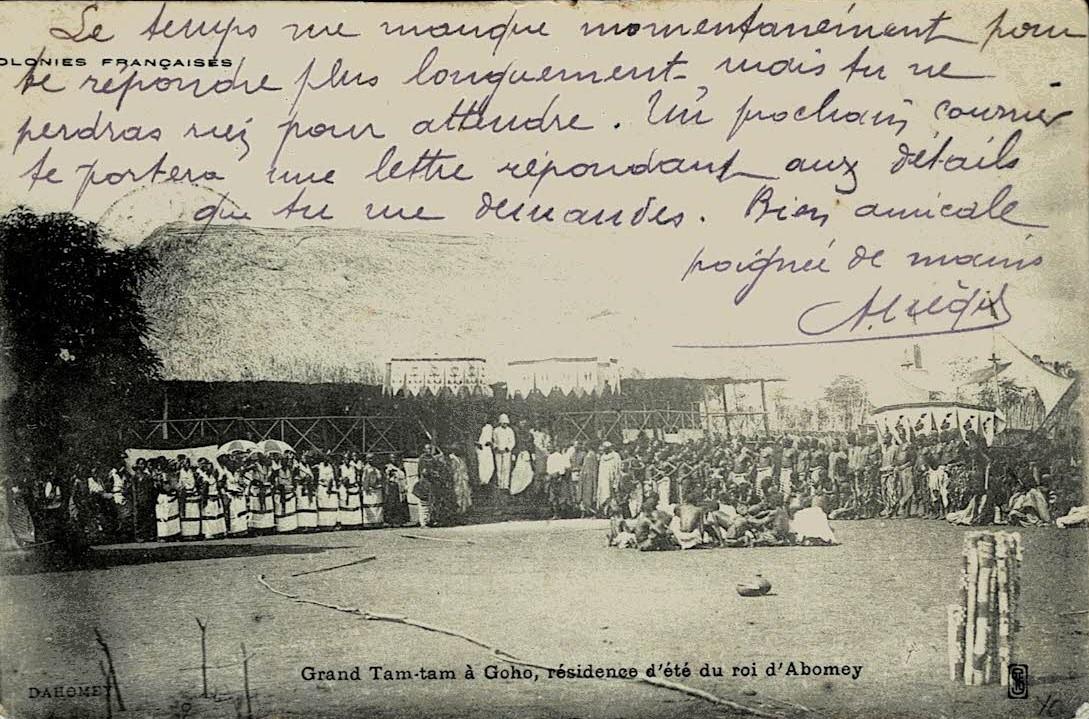 Le temps me manque momentanément pour
OLONIES FRANÇAISES
te répondre plus longuement mais tu ne
perdras rien pour attendre. Un prochain courrier
te portera une lettre répondant aux détails
que tu me demandes. Bien amicale
poignée de mains
Grand Tam-tam à Goho, résidence d'été du roi d'Abomey
DAHOMEY